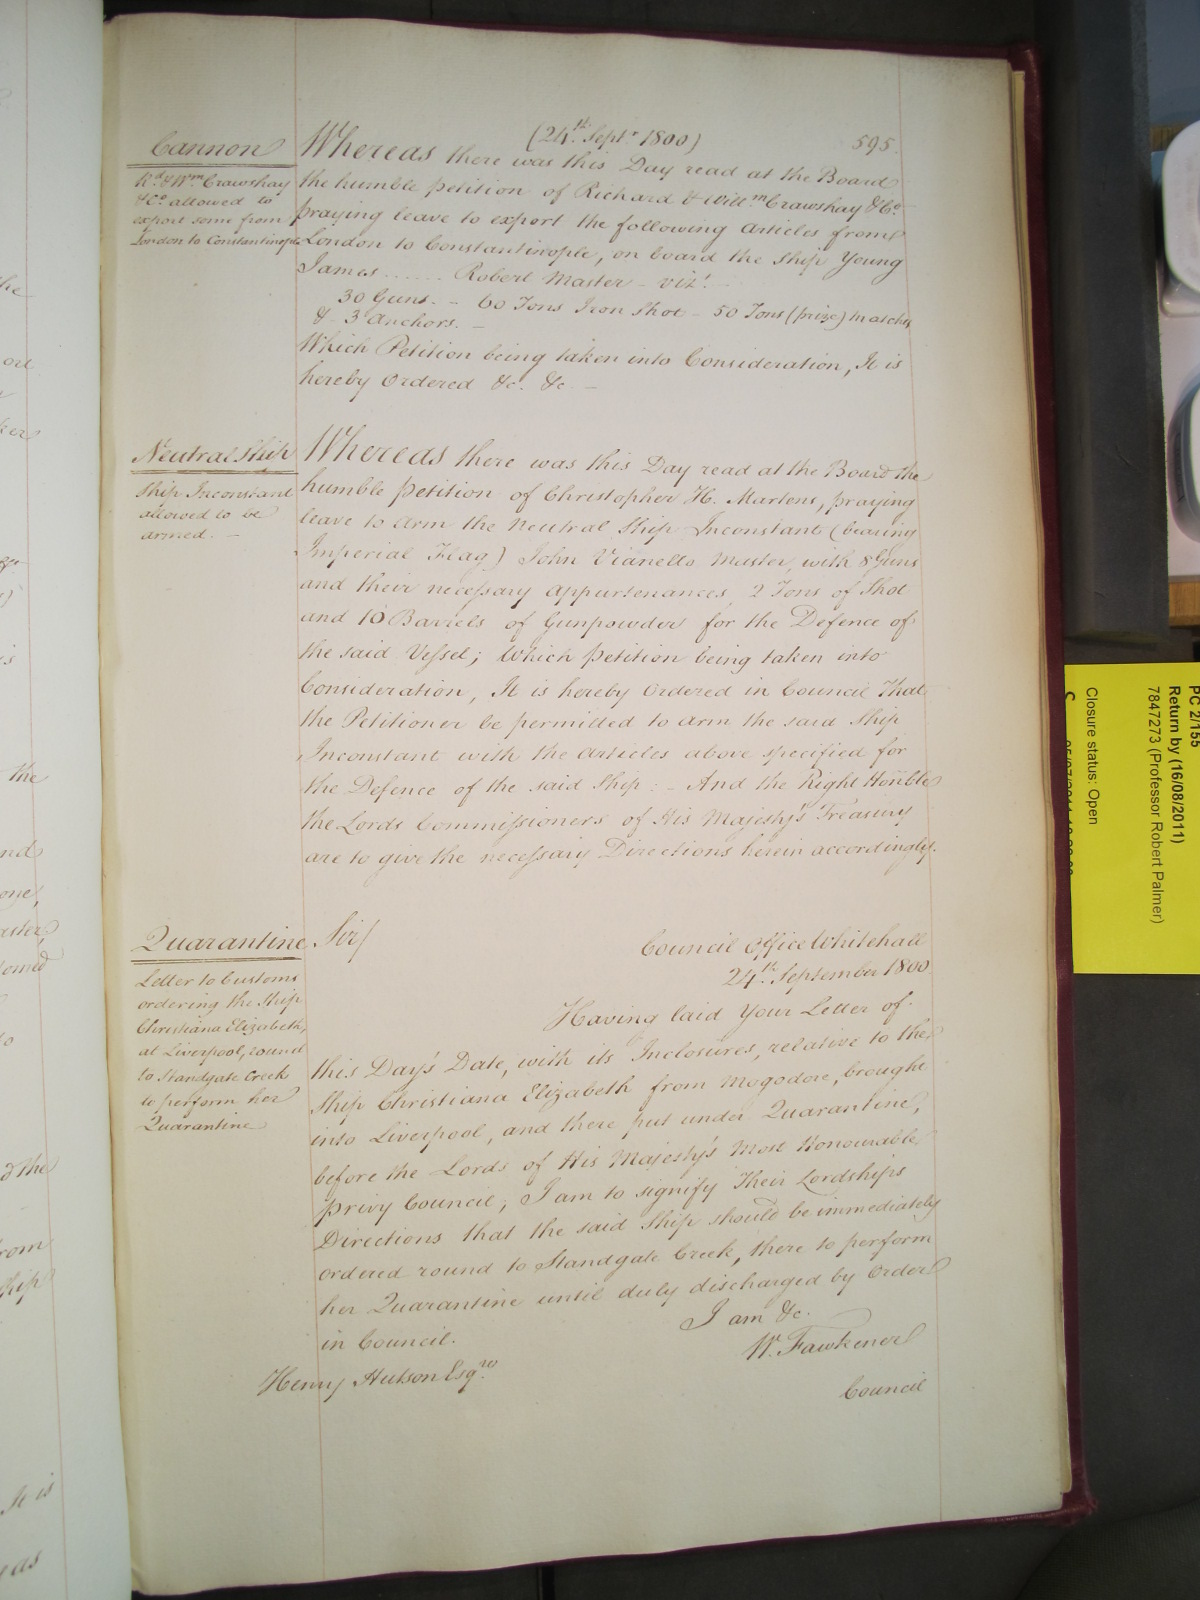 (24th. Septr. 1800)
595.
Cannon
Rd. & Wm. Crawshay
& Co. allowed to
export some from
London to Constantinople
Whereas there was this Day read at the Board
the humble petition of Richard & Willm. Crawshay & Co.
praying leave to export the following Articles from
London to Constantinople, on board the Ship Young
James ...... Robert Master – vizt.
30 Guns. – 60 Tons Iron Shot – 50 Tons (prize) Matches
& – 3 Anchors. –
Which Petition being taken into Consideration, It is
hereby Ordered &c. &c –
Neutral Ship
Ship Inconstant
allowed to be
armed. –
Whereas there was this Day read at the Board the
humble petition of Christopher H. Martens, praying
leave to Arm the Neutral Ship Inconstant (bearing
Imperial Flag) John Vianello Master, with 8 Guns
and their necessary Appurtenances, 2 Tons of Shot
and 10 Barrels of Gunpowder for the Defence of
the said Vessel; Which Petition being taken into
Consideration, It is hereby Ordered in Council That
the Petitioner be permitted to Arm the said Ship
Inconstant with the Articles above specified for
the Defence of the said Ship: – And the Right Honble
the Lords Commissioners of His Majesty's Treasury
are to give the necessary Directions herein accordingly.
Quarantine
Letter to Customs
ordering the Ship
Christiana Elizabeth,
at Liverpool, round
to Standgate Creek
to perform her
Quarantine
Sir/
Council Office Whitehall
24th. September 1800
Having laid Your Letter of
this Day's Date, with its Inclosures, relative to the
Ship Christiana Elizabeth from Mogodore, brought
into Liverpool, and there put under Quarantine,
before the Lords of His Majesty's Most Honourable
Privy Council; I am to signify Their Lordships
Directions that the said Ship should be immediately
ordered round to Standgate Creek, there to perform
her Quarantine until duly discharged by Order
in Council.
I am &c.
W. Fawkener
Henry Hutson Esqre.
Council
PC 2/155
Return by (16/08/2011)
7847273 (Professor Robert Palmer)
Closure status: Open